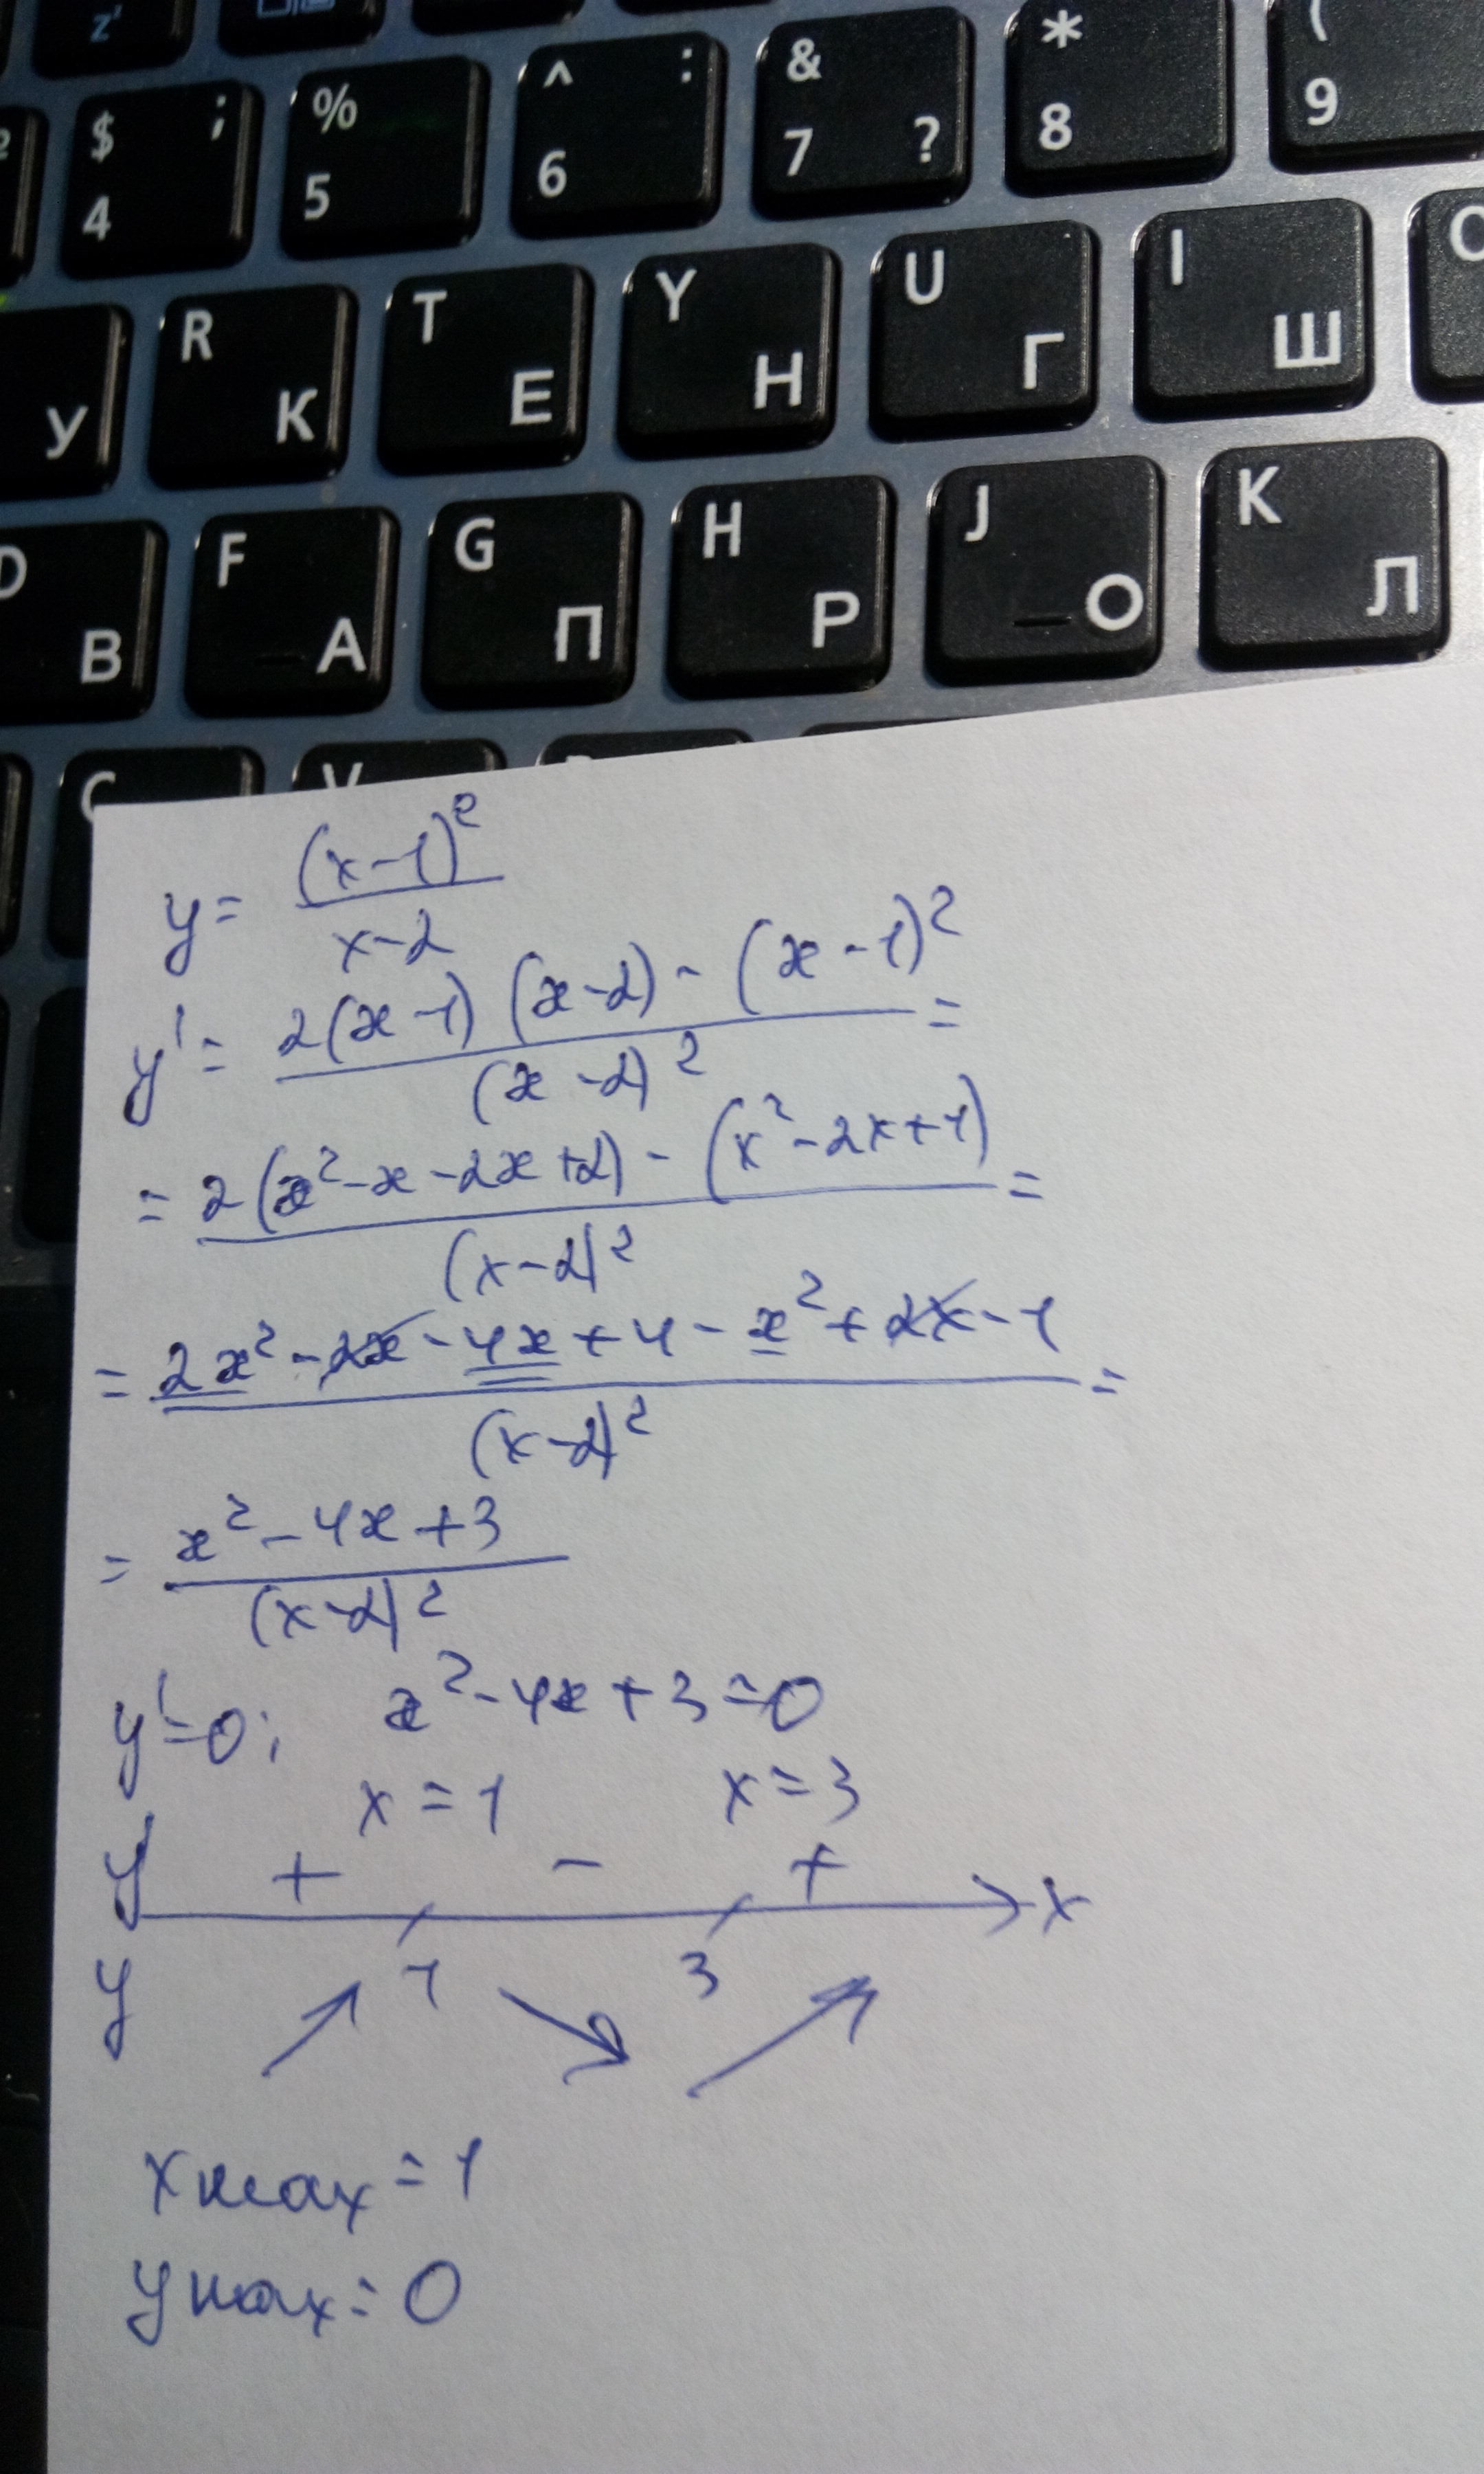 z'
$ ; 4
% 5
^ : 6
& 7 ?
* 8
( 9
У
R К
T Е
Y Н
U Г
I Ш
D В
F А
G П
H Р
J О
K Л
C
V
y = (x-1)² / x-2
y' = 2(x-1)(x-2) - (x-1)² / (x-2)² =
= 2(x²-x-2x+2) - (x²-2x+1) / (x-2)² =
= 2x² - 2x - 4x + 4 - x² + 2x - 1 / (x-2)² =
= x² - 4x + 3 / (x-2)²
y'=0; x² - 4x + 3 = 0
x = 1 x = 3
y' + - + x
y 1 3
x max = 1
y max = 0